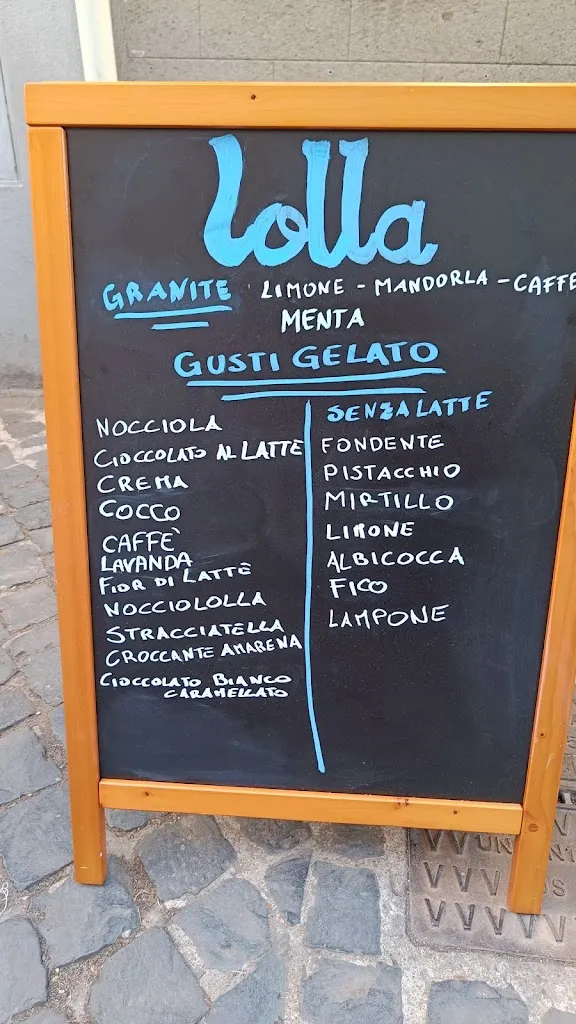 Lolla
GRANITE LIMONE - MANDORLA - CAFFE
MENTA
GUSTI GELATO
NOCCIOLA
CIOCCOLATO AL LATTE
CREMA
COCCO
CAFFÈ
LAVANDA
FIOR DI LATTE
NOCCIOLOLLA
STRACCIATELLA
CROCCANTE AMARENA
CIOCCOLATO BIANCO
CARAMELLATO
SENZA LATTE
FONDENTE
PISTACCHIO
MIRTILLO
LIMONE
ALBICOCCA
FICO
LAMPONE